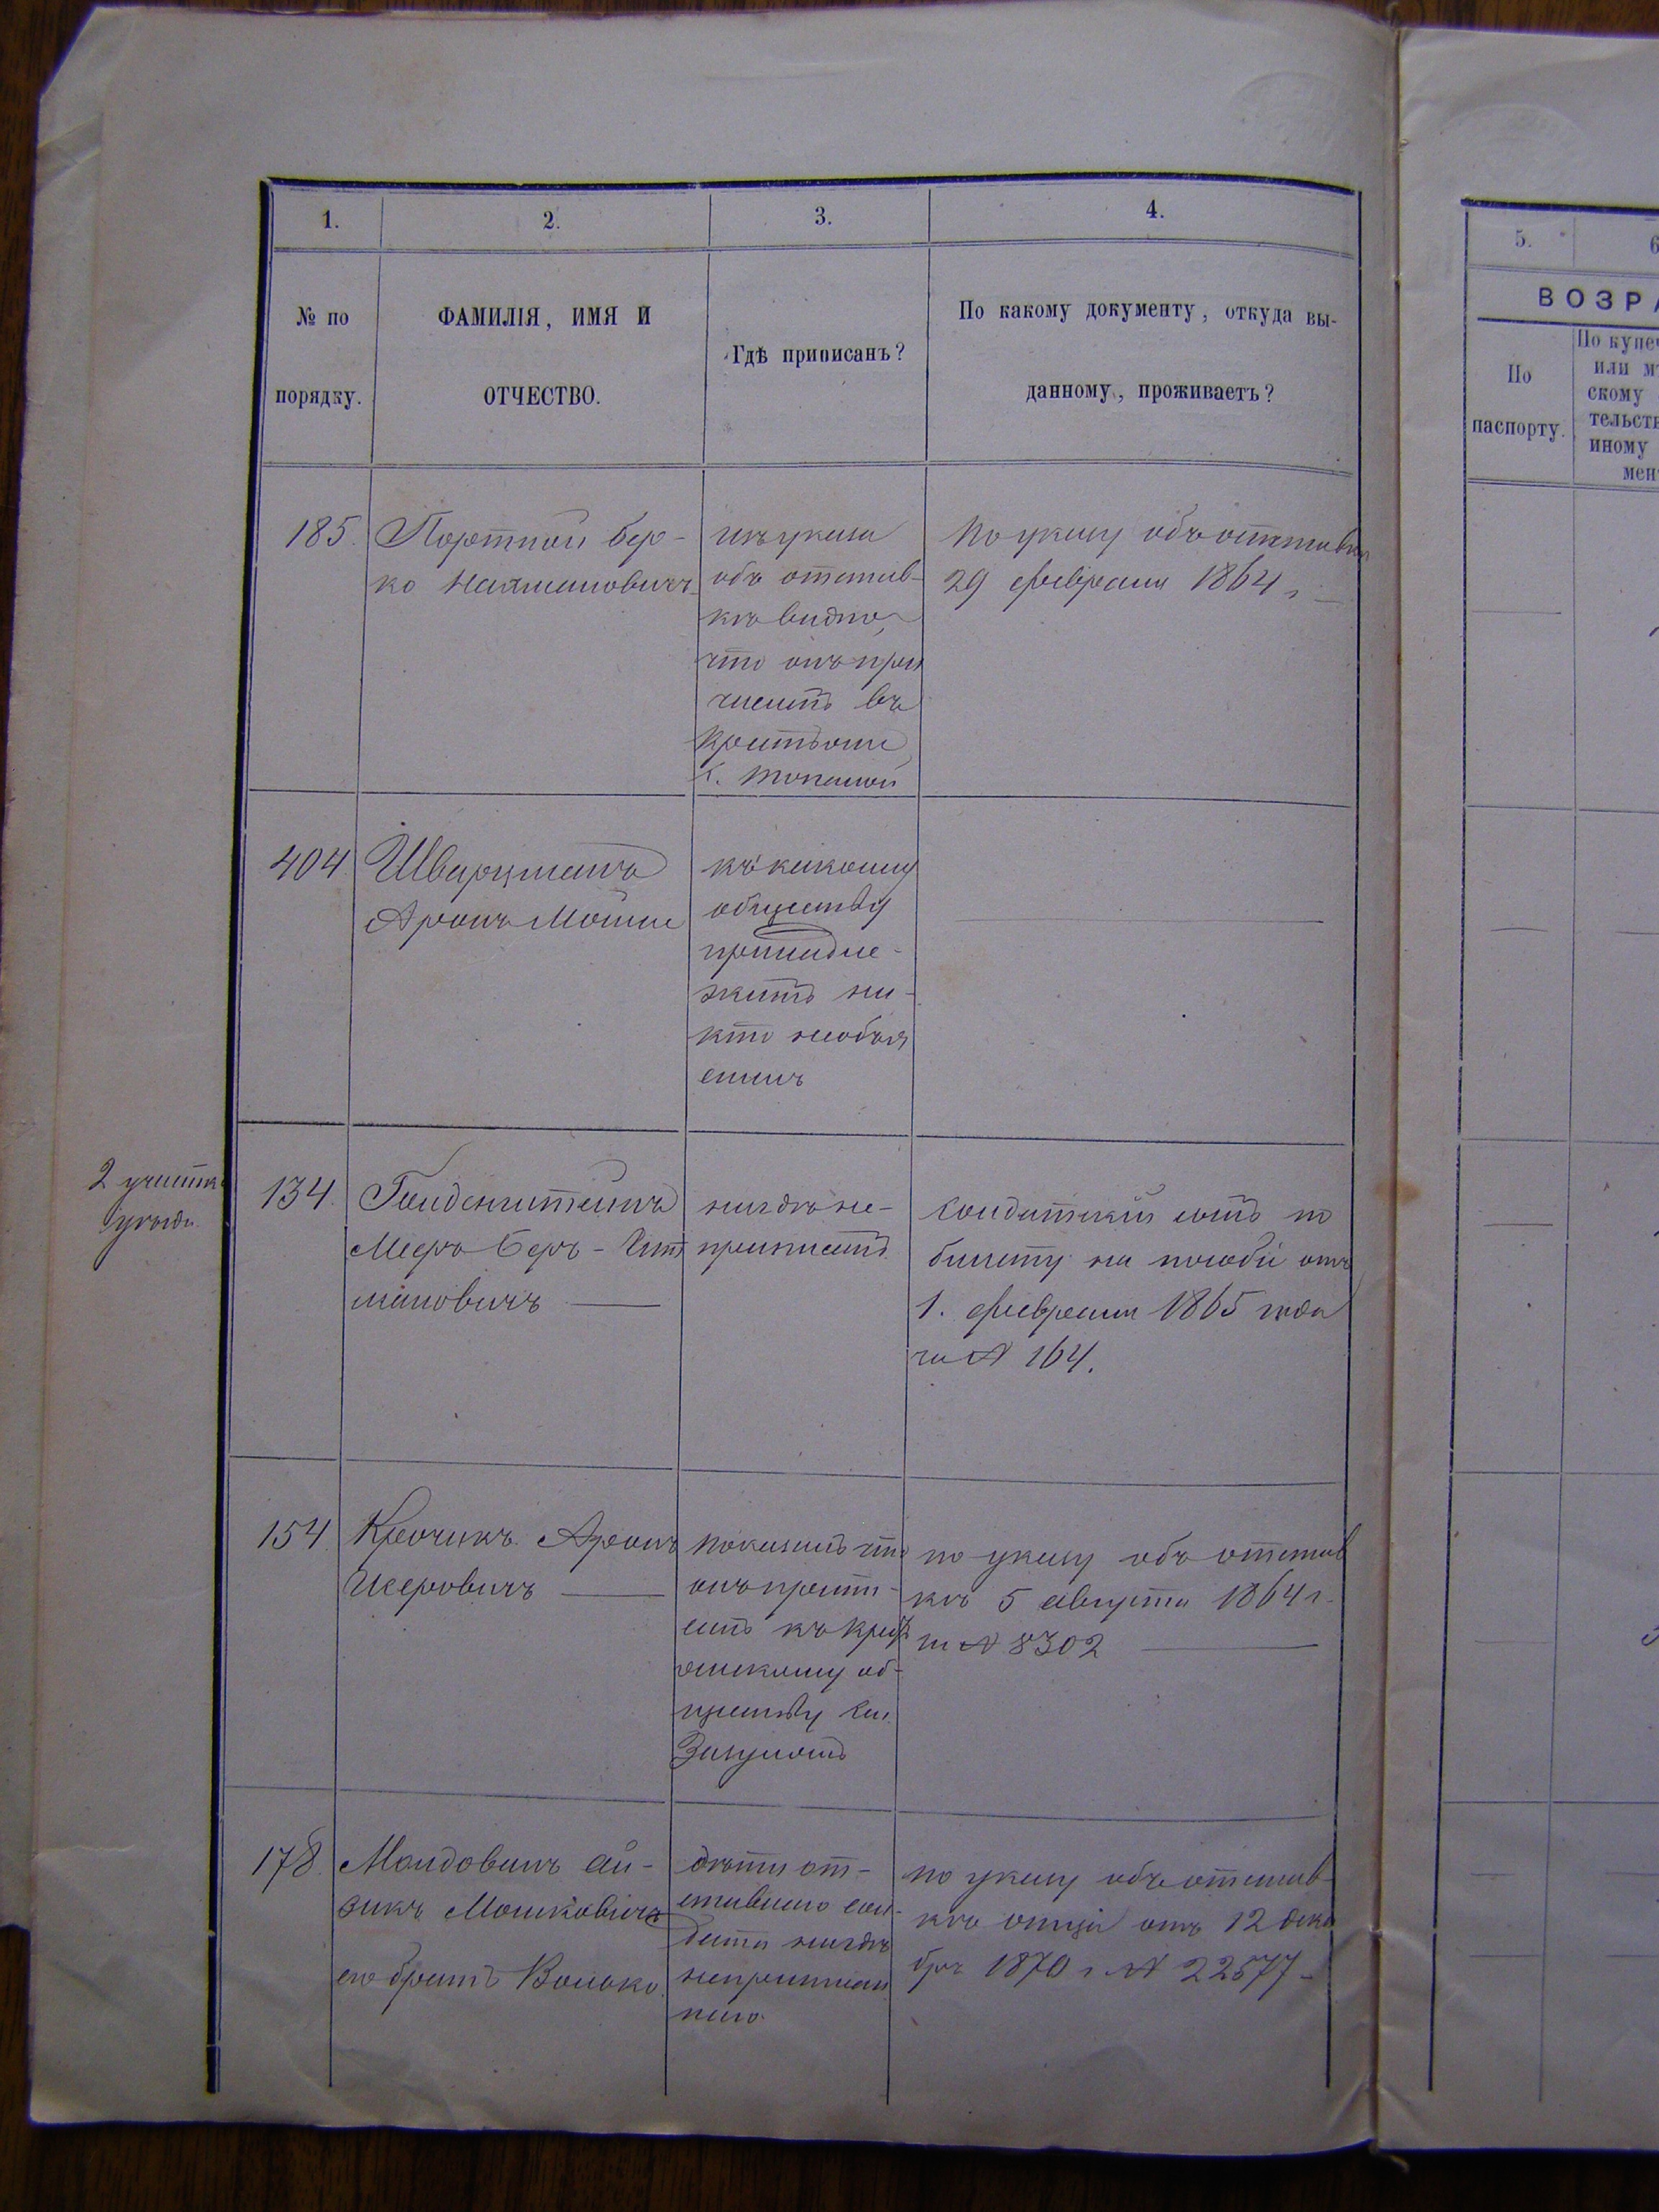 1.
2.
3.
4.
№ по
порядку.
ФАМИЛІЯ, ИМЯ И
ОТЧЕСТВО.
Гдѣ приписанъ?
По какому документу, откуда вы-
данному, проживаетъ?
185.
Портной Бер-
ко
изъ указа
объ отстав-
кѣ видно,
что онъ при
численъ въ
по указу объ отставке
29 февраля 1864 г.
404
Шварцманъ
Аронъ Мошке
къ какому
обществу
принадле-
житъ ни-
кто необъя
сни
2 участка
уѣзда
134.
Гольденштейнъ
Меръ Беръ -
мановичъ
нигдѣ не-
приписанъ
Солдатскій сынъ по
билету на пособіе отъ
1. февраля 1865 года
за № 164.
154.
Кричикъ Аронъ
Икеровичъ
показалъ что
онъ припи-
санъ къ крест
янскому об-
ществу Кол.
Згуры
по указу объ отстав
кѣ 5 августа 1864 г.
за № 8302
178.
Молдованъ Ай-
зикъ Мошковичъ
его братъ Волько.
дѣти от-
ставнаго сол-
дата нигдѣ
неприписан
наго.
по указу объ отстав-
кѣ отца отъ 12 дека
бря 1870 г. № 22577
5.
6
ВОЗРА
По
паспорту.
По купеч
или мѣ
скому
тельств
иному
мен